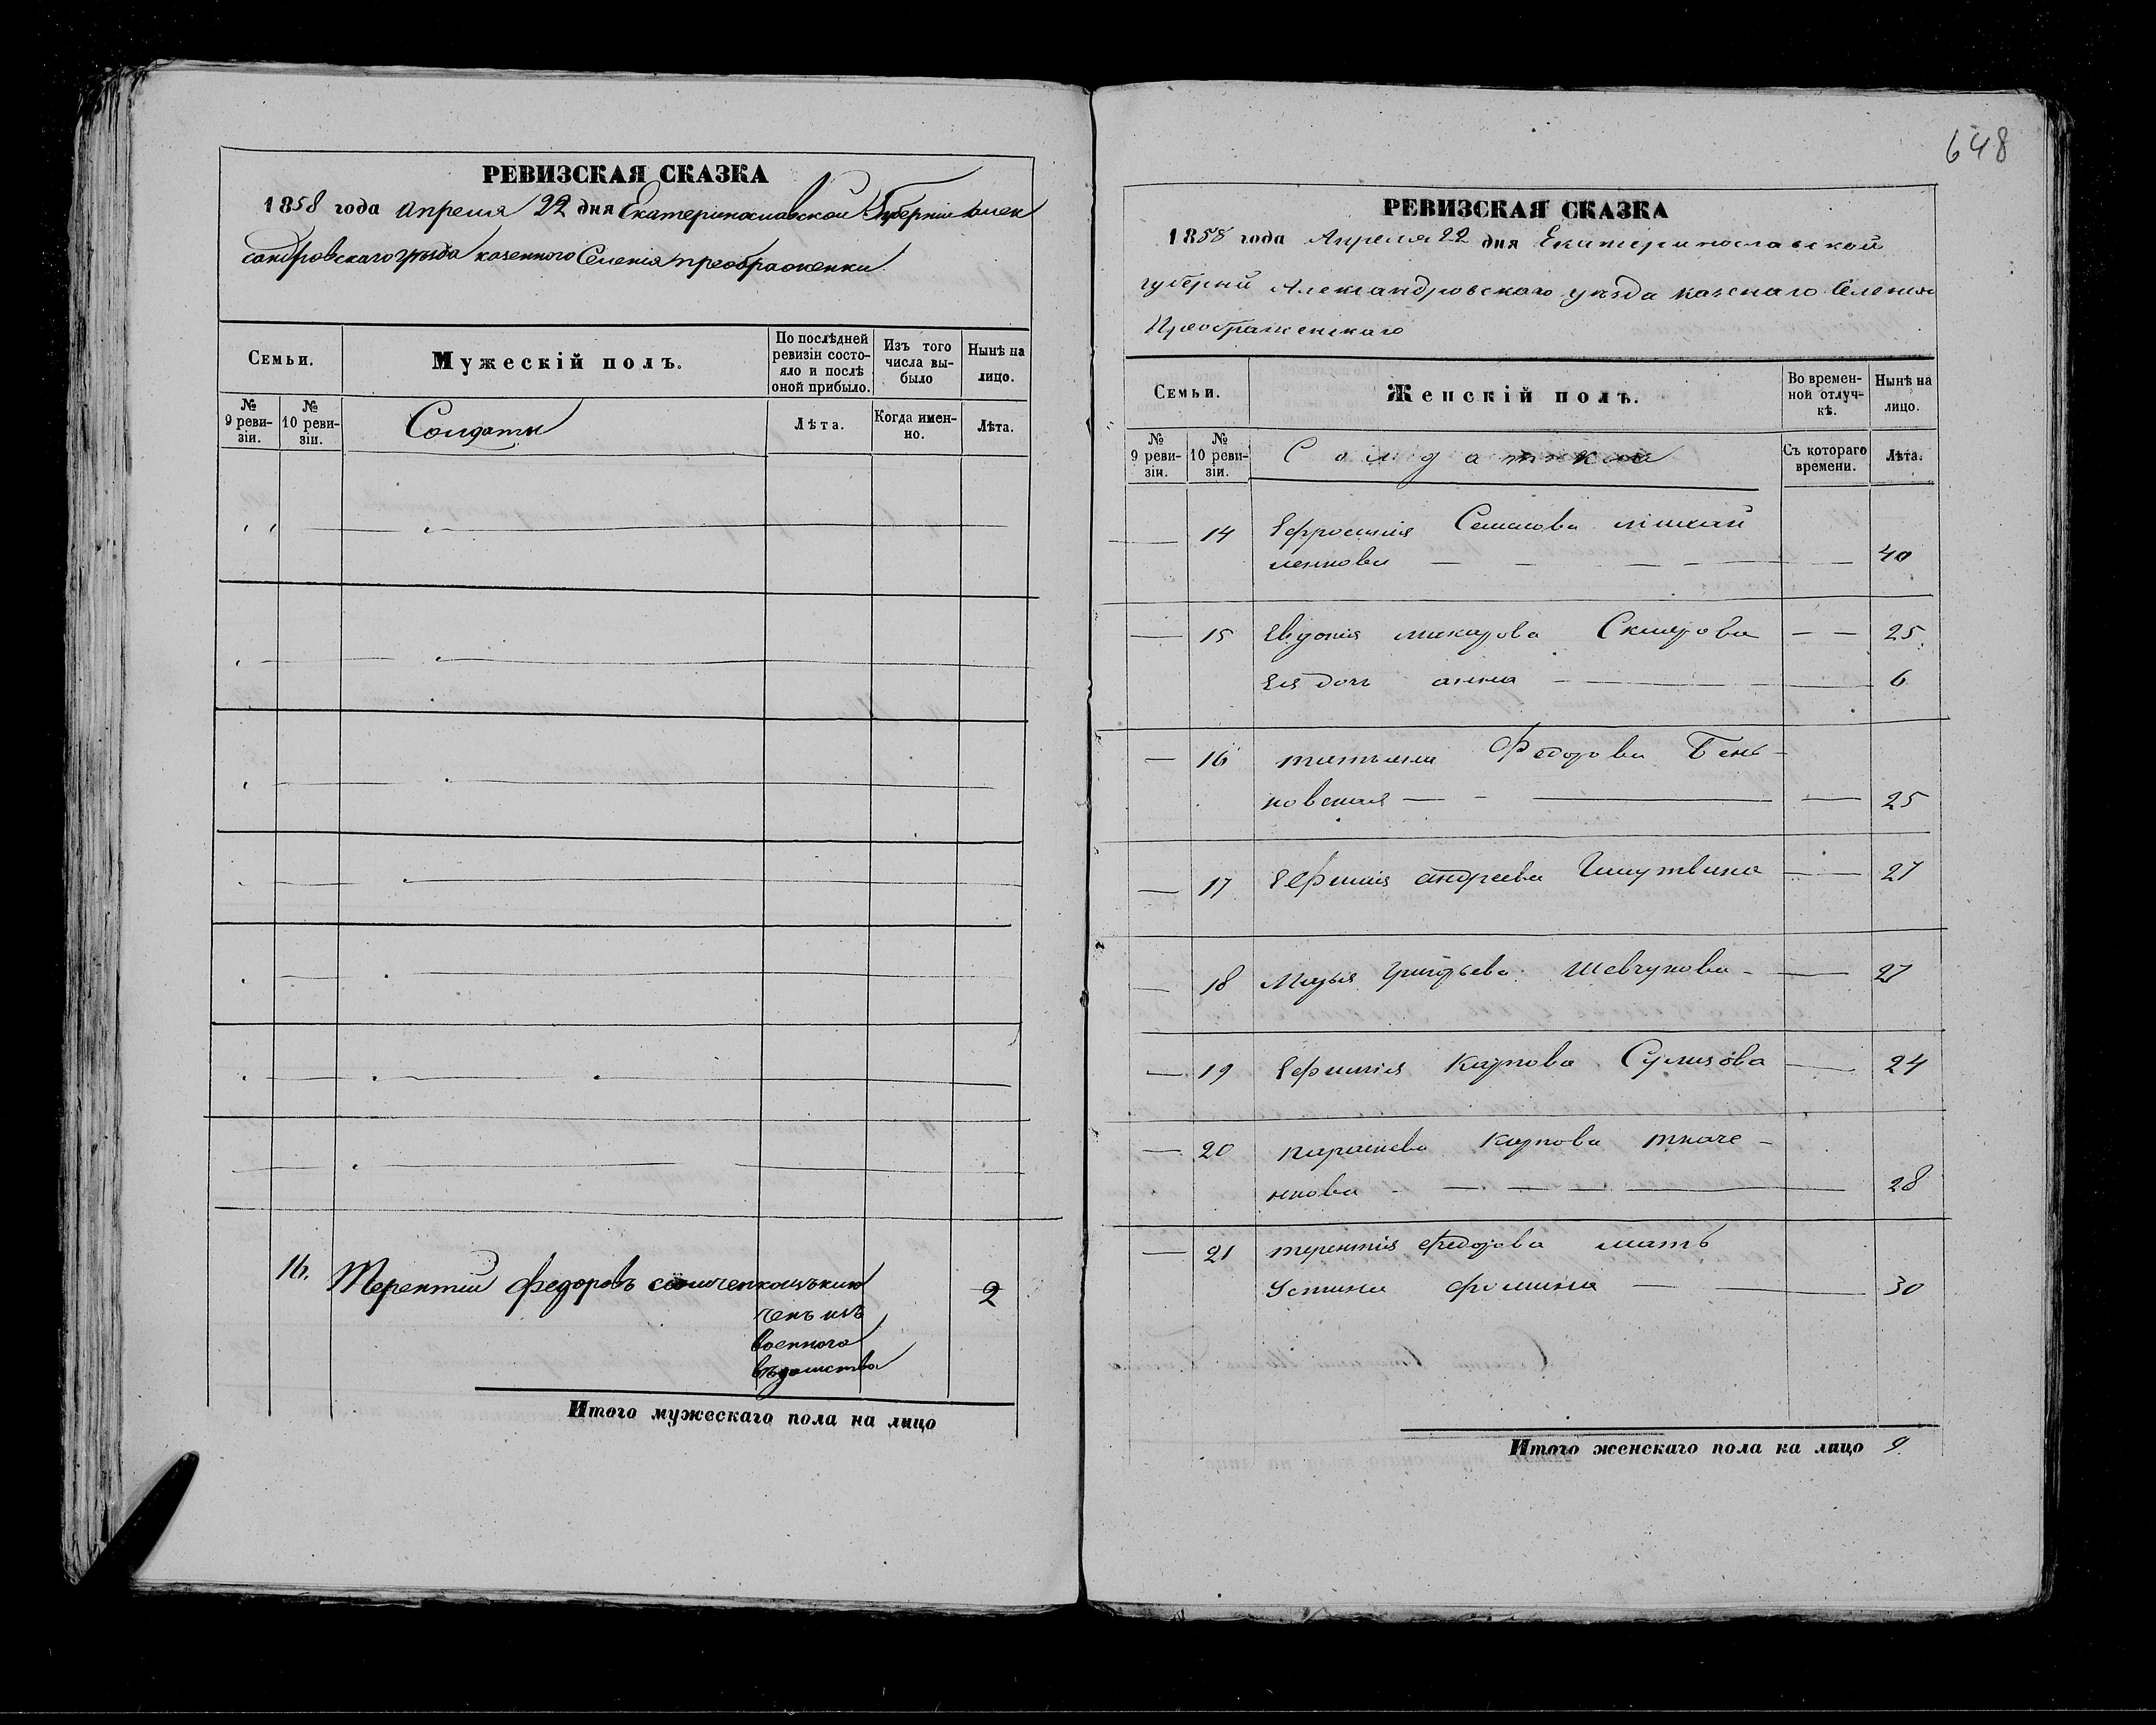 РЕВИЗСКАЯ СКАЗКА
1858 года Апреля 22 дня Екатеринославской Губерніи Алек
сандровскаго уѣзда казенного Селенія преображенки
Семьи.
Мужескій полъ.
По послѣдней ревизіи состояло и послѣ оной прибыло.
Изъ того числа выбыло
Нынѣ на лицо.
№ 9 ревизіи.
№ 10 ревизіи.
Солдаты
Лѣта.
Когда именно.
Лѣта.
16. Терентий Федоровъ
ченъ изъ
военного
вѣдомства
2
Итого мужескаго пола на лицо
648
РЕВИЗСКАЯ СКАЗКА
1858 года Апреля 22 дня Екатеринославской
губерний Александровскаго уѣзда казенаго Селения
Преображенскаго
Семьи.
Женскій полъ.
Во временной отлучкѣ.
Нынѣ на лицо.
№ 9 ревизіи.
№ 10 ревизіи.
Солдатки
Съ котораго времени.
Лѣта.
14 Ефросинія
40
15 Евдокия макарова Склярова 25
Ея дочь анна 6
16 татьяна Федорова Бень-
ковская 25
17 андреева 27
18 Марья Григорьева Шевчукова 27
19 Ефимия Карпова 24
20 парасковея Карпова ткаче-
нкова 28
21 терентия Федорова мать
Устина фомина 30
Итого женскаго пола на лицо 9